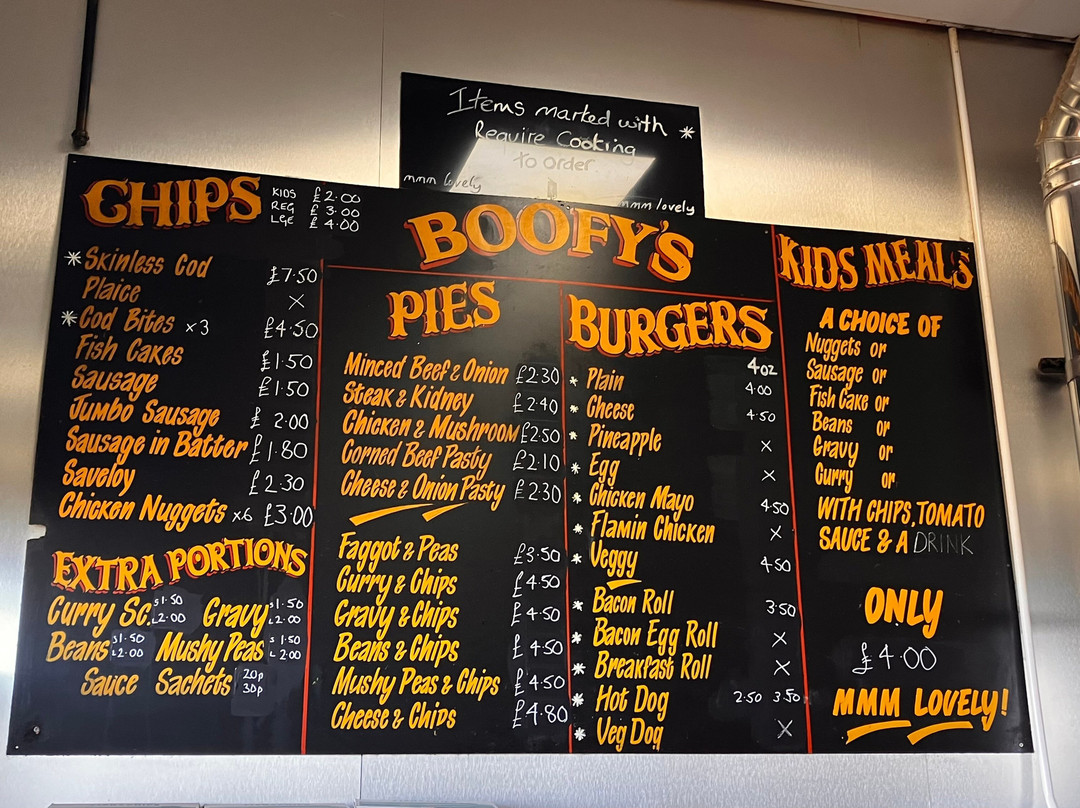 Items marked with *
Require Cooking
to order
mmm lovely
mmm lovely
BOOFY'S
CHIPS
KIDS £2.00
REG £3.00
LGE £4.00
*Skinless Cod £7.50
Plaice X
*Cod Bites x3 £4.50
Fish Cakes £1.50
Sausage £1.50
Jumbo Sausage £2.00
Sausage in Batter £1.80
Saveloy £2.30
Chicken Nuggets x6 £3.00
EXTRA PORTIONS
Curry Sc. S 1.50 L 2.00 Gravy S 1.50 L 2.00
Beans S 1.50 L 2.00 Mushy Peas S 1.50 L 2.00
Sauce Sachets 20p 30p
PIES
Minced Beef & Onion £2.30
Steak & Kidney £2.40
Chicken & Mushroom £2.50
Corned Beef Pasty £2.10
Cheese & Onion Pasty £2.30
Faggot & Peas £3.50
Curry & Chips £4.50
Gravy & Chips £4.50
Beans & Chips £4.50
Mushy Peas & Chips £4.50
Cheese & Chips £4.80
BURGERS
4oz
* Plain 4.00
* Cheese 4.50
* Pineapple X
* Egg X
* Chicken Mayo 4.50
* Flamin Chicken X
* Veggy 4.50
* Bacon Roll 3.50
* Bacon Egg Roll X
* Breakfast Roll X
* Hot Dog 2.50 3.50
* Veg Dog X
KIDS MEALS
A CHOICE OF
Nuggets or
Sausage or
Fish Cake or
Beans or
Gravy or
Curry or
WITH CHIPS, TOMATO
SAUCE & A DRINK
ONLY
£4.00
MMM LOVELY!